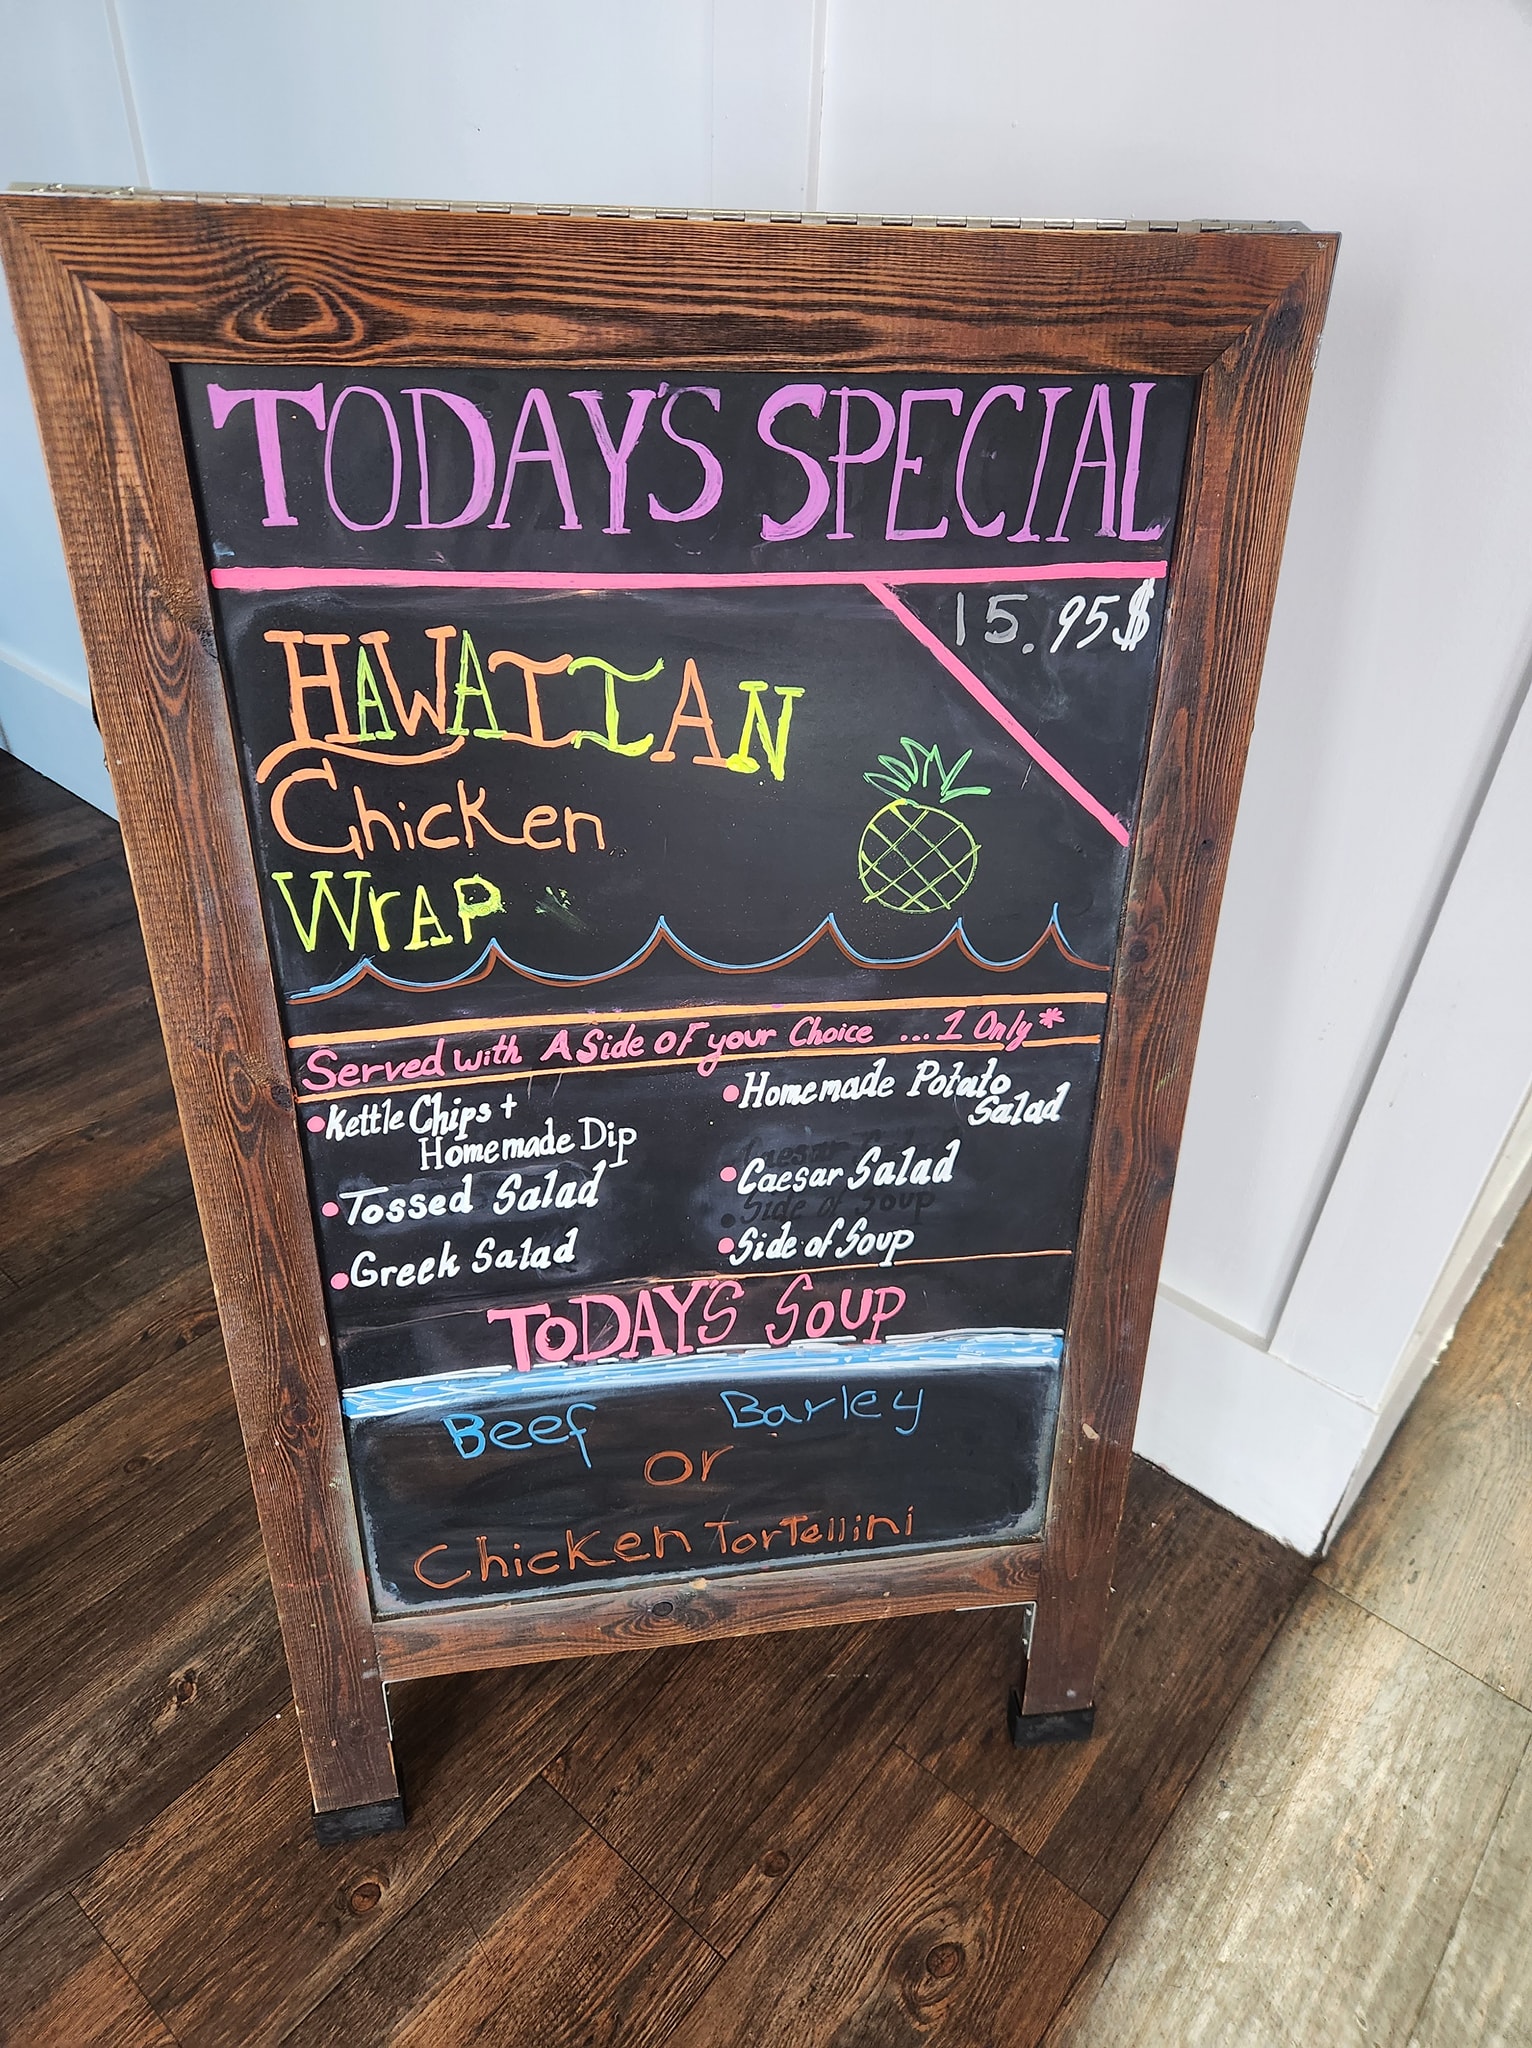 TODAY'S SPECIAL
15.95$
HAWAIIAN
Chicken
WrAP
Served with A Side of your Choice ... 1 Only*
•Kettle Chips +
Homemade Dip
•Tossed Salad
•Greek Salad
•Homemade Potato
Salad
•Caesar Salad
•Side of Soup
TODAY'S SOUP
Beef Barley
or
Chicken Tortellini